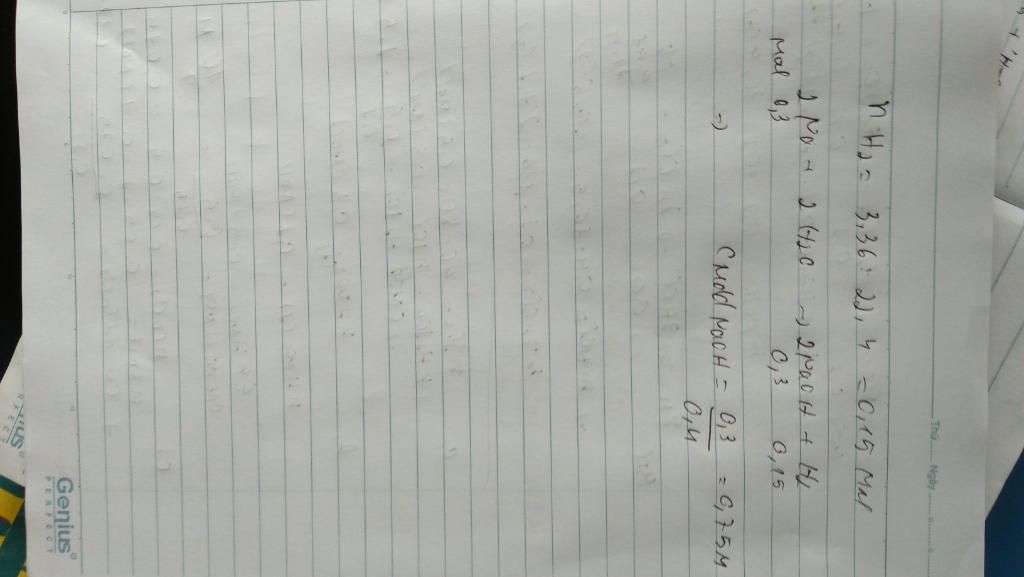 Thứ..... Ngày.............
n H₂ = 3,36 : 22,4 = 0,15 mol
2 Na + 2 H₂O → 2 NaOH + H₂
mol 0,3 0,3 0,15
=) CMdd NaOH = 0,3 / 0,4 = 0,75M
Genius®
PERFECT